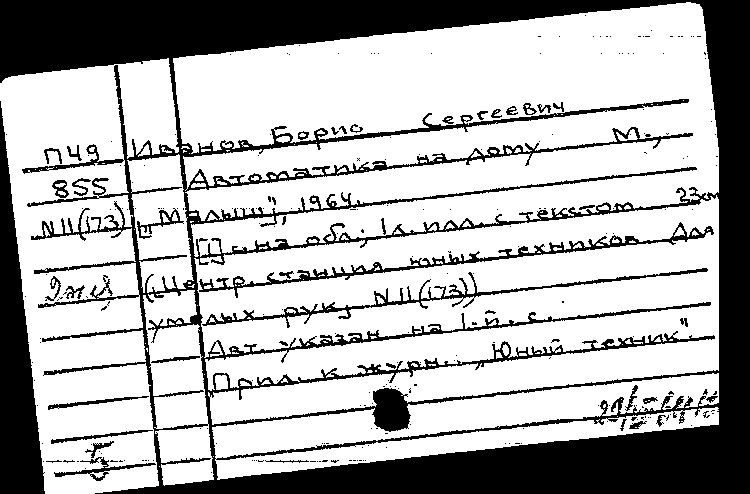 П49 Иванов, Борис Сергеевич
855 Автоматика на дому М.,
N11(173) [„Малыш"], 1964.
[1] с. на обл.; 1л. илл. с текстом. 23см
(Центр. станция юных техников. Для
умелых рук, N11(173))
Авт. указан на 1-й. с.
„Прил. к журн. „Юный техник".
5